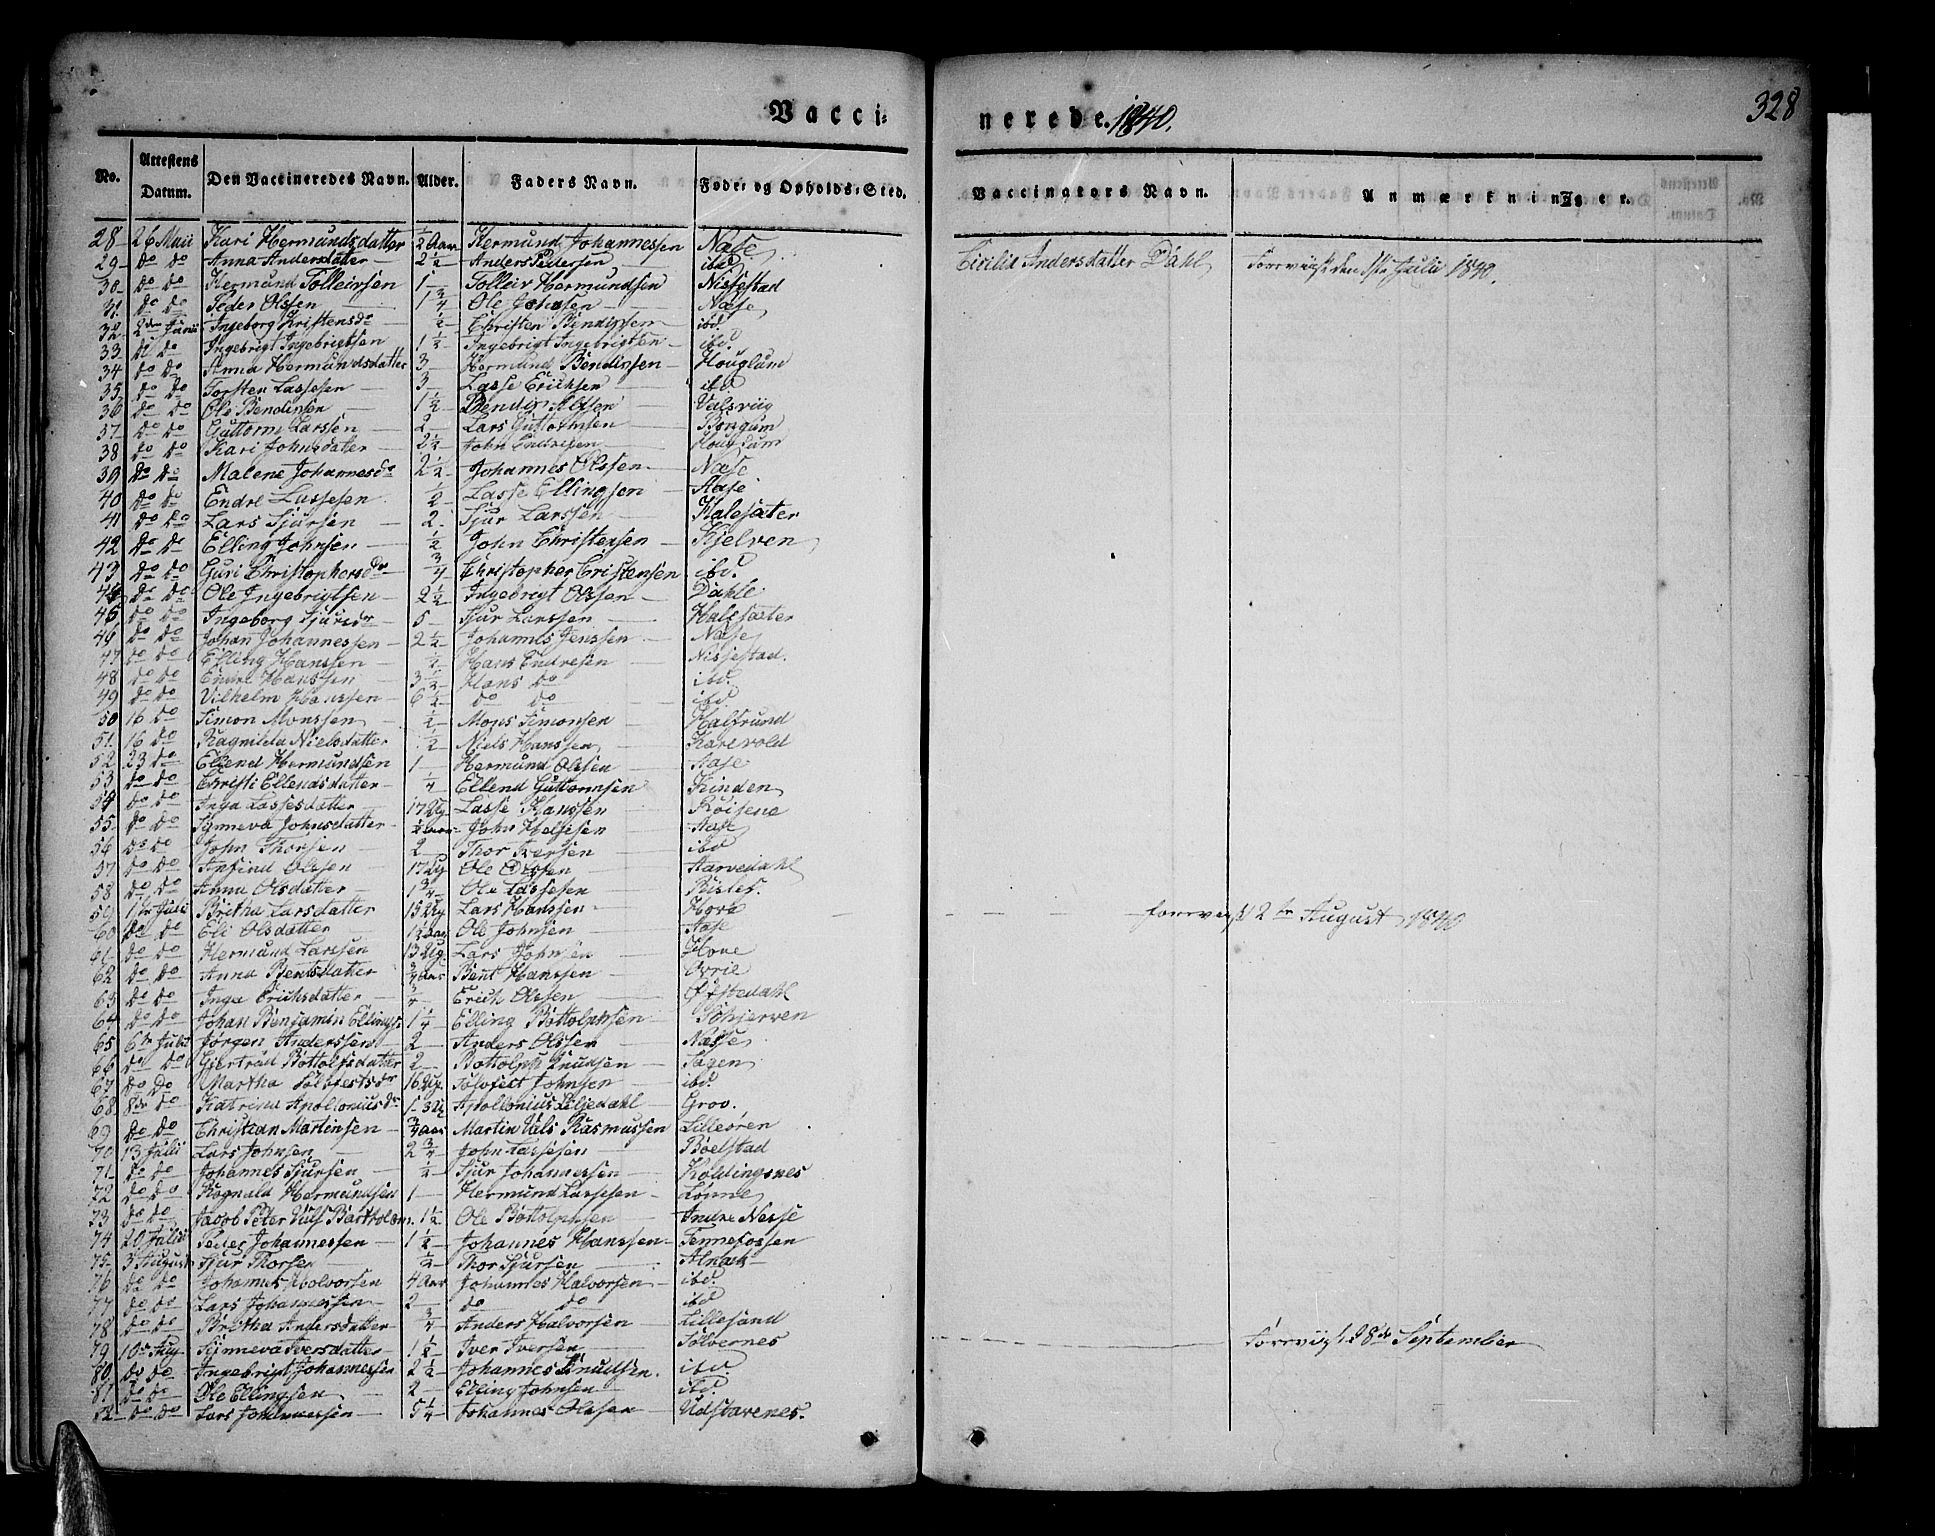 Vacci-
nerede. 1840.
328
No. Attestens Datum. Den Vaccineredes Navn. Alder. Faders Navn. Føde- og Opholds-Sted.
Vaccinators Navn. Anmærkninger.
28 26 Maii Kari Hermundsdatter ½ Aar Hermund Johannessen Næse
Cicilia Andersdatter Dahl, den 1ste Julii 1840.
29 do do Anna Andersdatter 2½ Anders Pedersen ibd
30 do do Hermund Tolleivsen 1 Tolleiv Hermundsen Nissestad
31 do do Peder Olssen 1¾ Ole Johnsen Næse
32 2den Junii Ingeborg Kristensdr ½ Christen Bendixsen ibd.
33 do do Ingebrigt Ingebrigtsen 1½ Ingebrigt Ingebrigtsen ibd.
34 do do Anna Hermundsdatter 3 Hermund Bendixsen Houglum
35 do do Torsten Lassesen 3 Lasse Erichsen ibd
36 do do Ole Bendixsen 1½ Bendix Valsviig
37 do do Guttorm Larssen 2 Lars Guttormsen Borgum
38 do do Kari Johnsdatter 2½ John Endresen
39 do do Malene Johannesdr 2½ Johannes Olssen Næse
40 do do Endre Lassesen ½ Lasse Ellingsen Aase
41 do do Lars Sjursen 2 Sjur Larssen Halesæter
42 do do Elling Johnsen ½ John Christensen Kjelven
43 do do Guri Christophersdr ¾ Christopher Cristensen ibd.
44 do do Ole Ingebrigtsen 2½ Ingebrigt Olssen Dahle
45 do do Ingeborg Sjursdr 5 Sjur Larssen Halesæter
46 do do Johan Johannessen 2½ Johannes Jenssen Næse
47 do do Elling Hanssen ½ Hans Endresen Nissestad.
48 do do Endre Hanssen 3½ Hans do ibd.
49 do do Vilhelm Hanssen 6½ do do ibd.
50 16 do Simon Monssen ½ Mons Simonsen Halsrund
51. 16 do Ragnilda Nielsdatter ½ Niels Hanssen Karevold
52 23 do Ellend Hermundsen 1 Hermund Olssen Aase
53 do do Christi Ellendsdatter ¼ Ellend Guttormsen Hinden
54 do do Inga Lassesdatter 17 Ug Lasse Hanssen Røisene
55 do do Synneva Johnsdatter ½ Aar John Aase
56 do do John Thorsen 2 Thor Iversen ibd
57 do do Olssen 17 Ug Ole Olssen Aarvedahl
58 do do Anna Olsdatter 1¾ Ole Lassesen
59 1ste Julii Britha Larsdatter 15 Ug Lars Hanssen Hove
2den August 1840
60 do do Eli Olsdatter 1½ Aar Ole Johnsen Aase
61 do do Hermund Larssen 13 Ug Lars Johnsen Hove
62 do do Anna Bentsdatter ¾ Aar Bent Hanssen Ovrie
63 do do Inga Erichsdatter ¾ Erich Olssen Øfstedahl
64 do do Johan Benjamin Ellings. 1¼ Elling Bottolphsen
65 6te Julii Jørgen Anderssen 2 Anders Olssen Næsse
66 do do Giertrud Bottolfsdatter 2 Bottolph Knudsen Tagen
67 do do Martha Solofestsdr 16 Ug Solofest Johnsen ibd.
68 8de do Katrina Apollonius dr Apollonius Liljedahl Grov.
69 do do Christian Martinsen ¾ Aar Martin Vals Rasmussen Lilleøren
70 13 Julii Lars Johnsen 2¾ John Lassesen Bøelstad
71 do do Johannes Sjursen ½ Sjur Johannessen Koldingsnes
72 do do Rognald Hermundsen 1 Hermund Lassesen Lønne
73 do do Jacob Peter Ulf Bartholom. 1½ Ole Bottolphsen Indre Nesse
74 20 Julii Peder Johannessen 1½ Johannes Hanssen Fennefossen
75 3 August Sjur Thorsen ½ Thor Sjursen
76 do do Johannes Halvorsen 4 Aar Johannes Halvorsen ibd.
77 do do Lars Johannessen 2 do do ibd
78 do do Britha Andersdatter ¾ Anders Halvorsen Lillesand
79 10de Aug Synneva Iversdatter 1½ Iver Iversen Solvernes
8de September
80 do do Ingebrigt Johannessen 2½ Johannes Knudsen. ibd.
81 do do Ole Ellingsen 2 Elling Johnsen ibd.
82 do do Lars Johannessen 5¼ Johannes Olssen Udstvarenes.